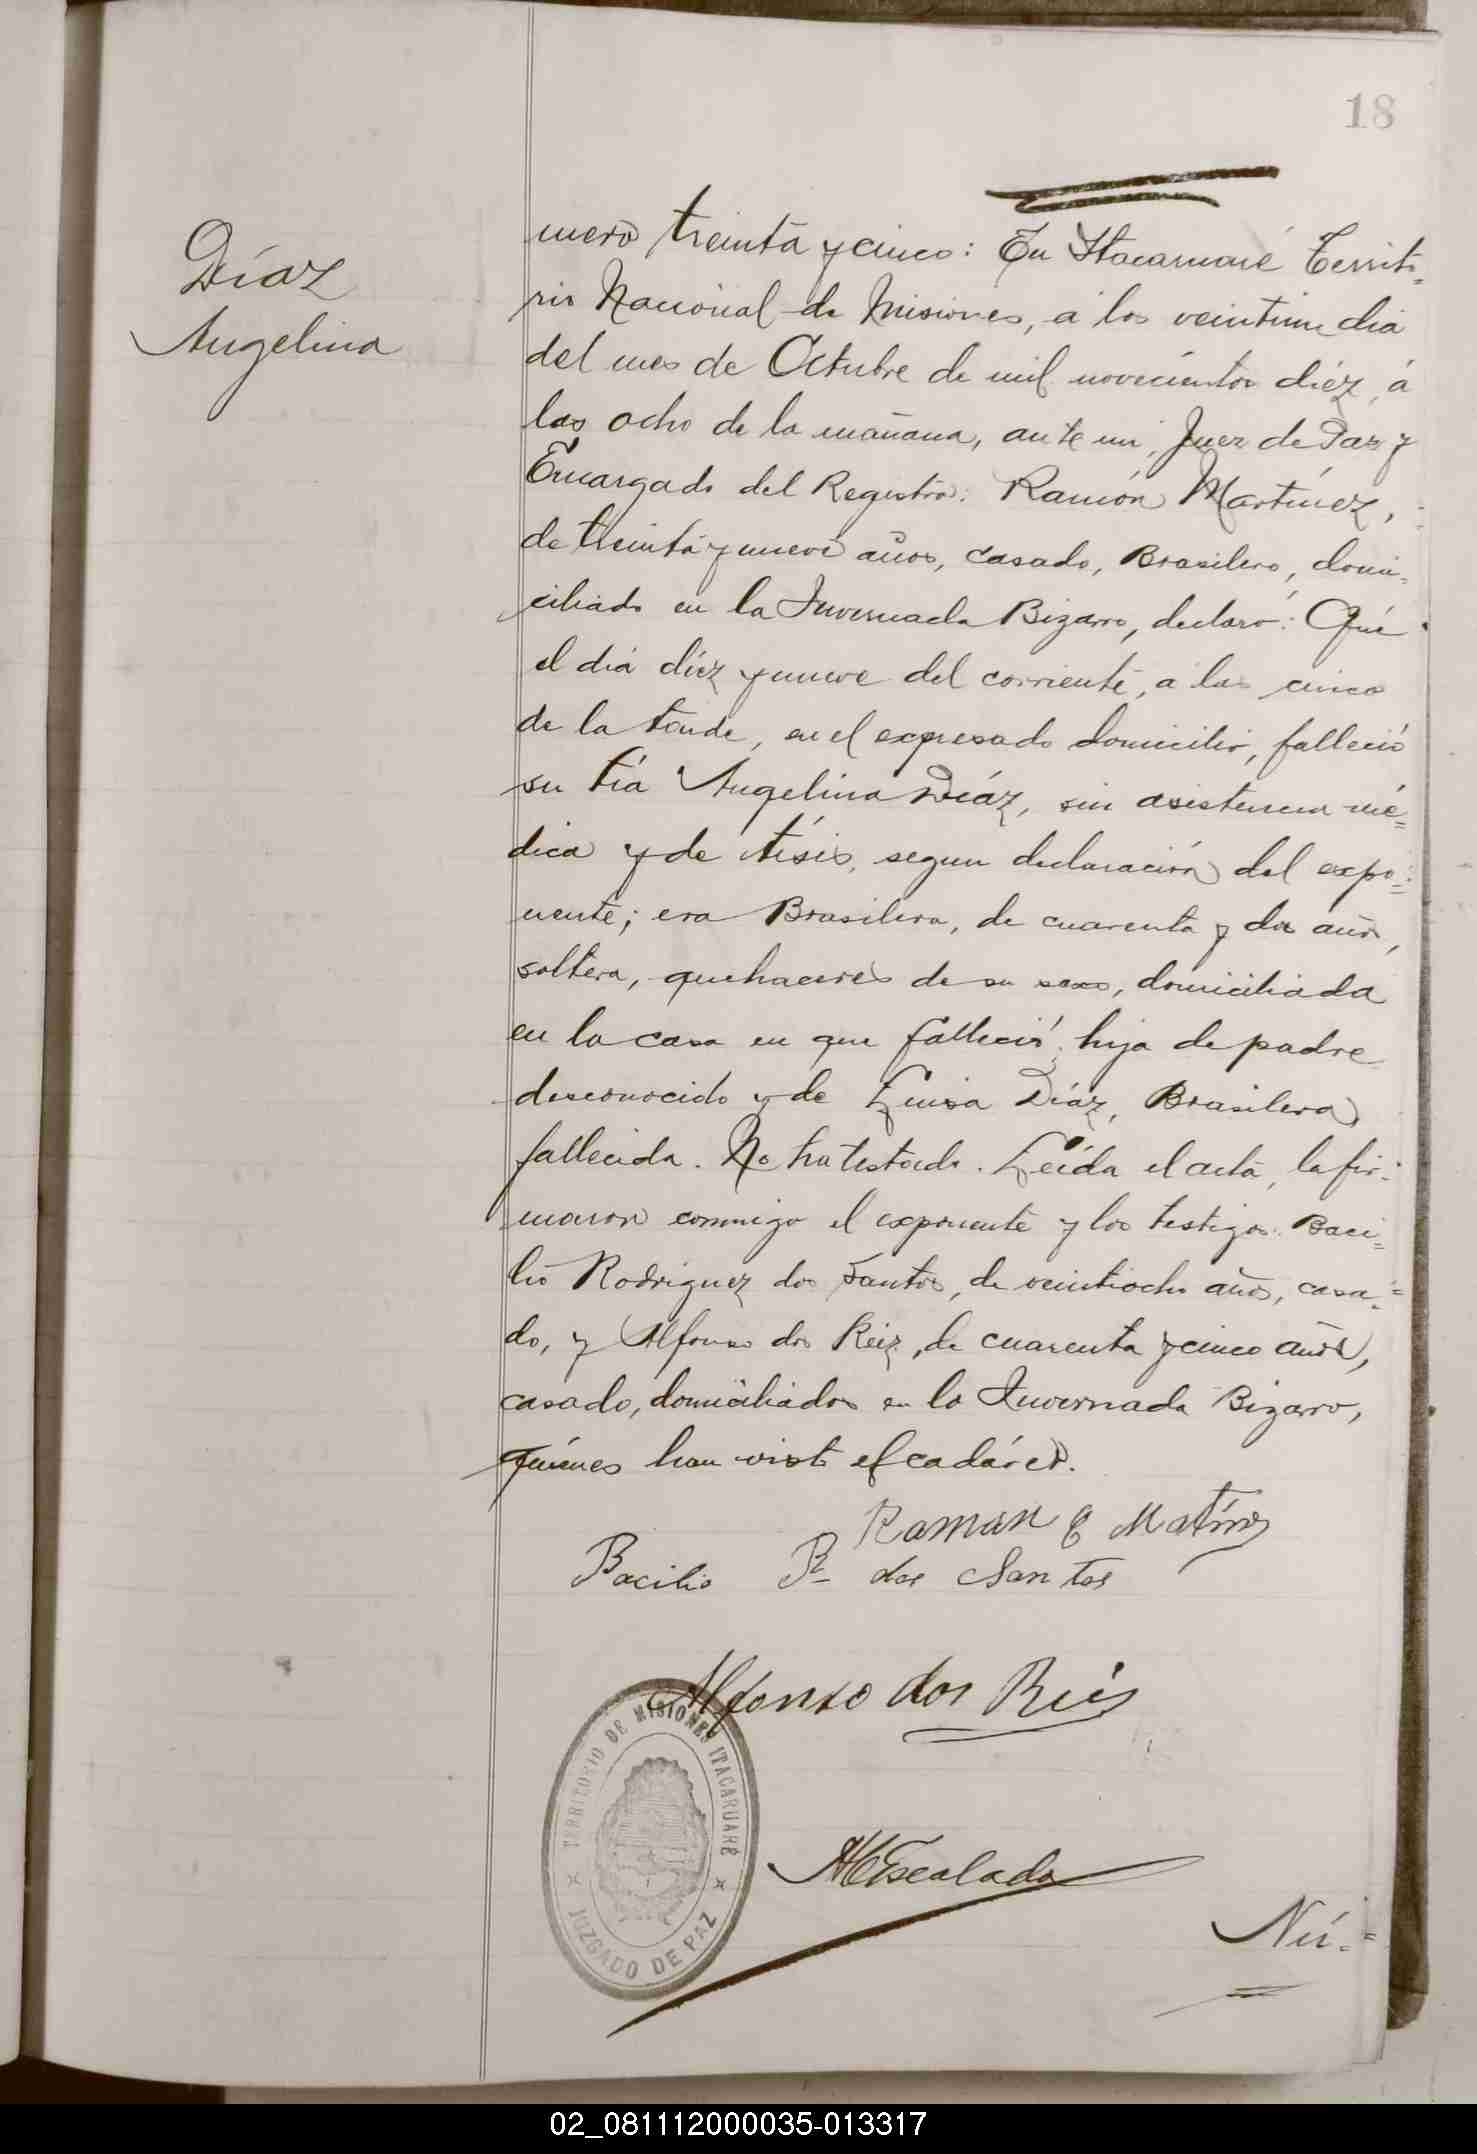 18
Díaz
Angelina
mero treinta y cinco: En Itacaruaré Territo=
rio Nacional de Misiones, á los veintiun dia
del mes de Octubre de mil novecientos diéz, á
las ocho de la mañana, ante mi, Juez de Paz y
Encargado del Registro: Ramón Martínez,
de treinta y nueve años, casado, Brasilero, domi=
ciliado en la Invernada Bizarro, declaró: Qué
el dia diéz y nueve del corriente, a las cinco
de la tarde, en el expresado domicilio, falleció
su tía Angelina Díaz, sin asistencia mé=
dica y de tísis, segun declaración del expo=
nente; era Brasilera, de cuarenta y dos años,
soltera, quehaceres de su sexo, domiciliada
en la casa en que falleció; hija de padre
desconocido y de Luisa Díaz, Brasilera,
fallecida. No ha testado. Leída el acta, la fir=
maron conmigo el exponente y los testigos: Baci=
lio Rodriguez dos Santos, de veintiocho años, casa=
do, y Alfonso dos Reiz, de cuarenta y cinco años,
casado, domiciliados en la Invernada Bizarro,
quiénes han visto el cadáver.
Raman E Matínez
Bacilio R dos Santos
Alfonso dos Reis
TERRITORIO DE MISIONES ITACARUARÉ
JUZGADO DE PAZ
Escalada
Nú=
02_081112000035-013317